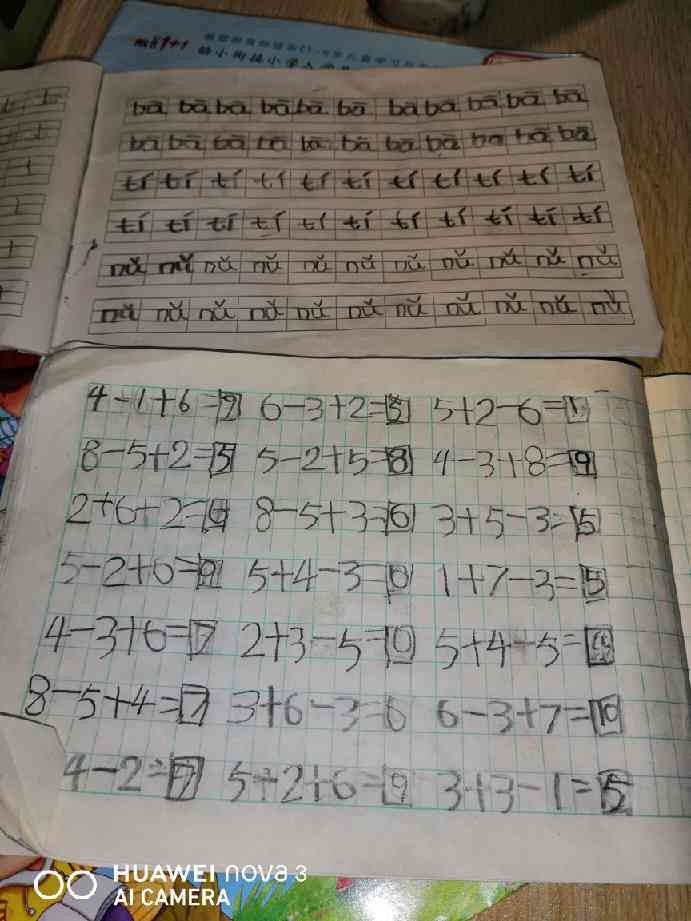 幼小衔接小学入学
bā bā bā bā bā bā bā bā bā bā bā
bā bā bā bā bā bā bā bā bā bā bā
tí tí tí tí tí tí tí tí tí tí tí
tí tí tí tí tí tí tí tí tí tí tí
nǚ nǚ nǚ nǚ nǚ nǚ nǚ nǚ nǚ nǚ nǚ
nǚ nǚ nǚ nǚ nǚ nǚ nǚ nǚ nǚ nǚ nǚ
4-1+6=9 6-3+2=5 5+2-6=1
8-5+2=5 5-2+5=8 4-3+8=9
2+6+2= 8-5+3=6 3+5-3=5
5-2+6=9 5+4-3=6 1+7-3=5
4-3+6=7 2+3-5=0 5+4-5=4
8-5+4=7 3+6-3=6 6-3+7=10
4-2=7 5÷2+6=9 3+3-1=5
HUAWEI nova 3
AI CAMERA